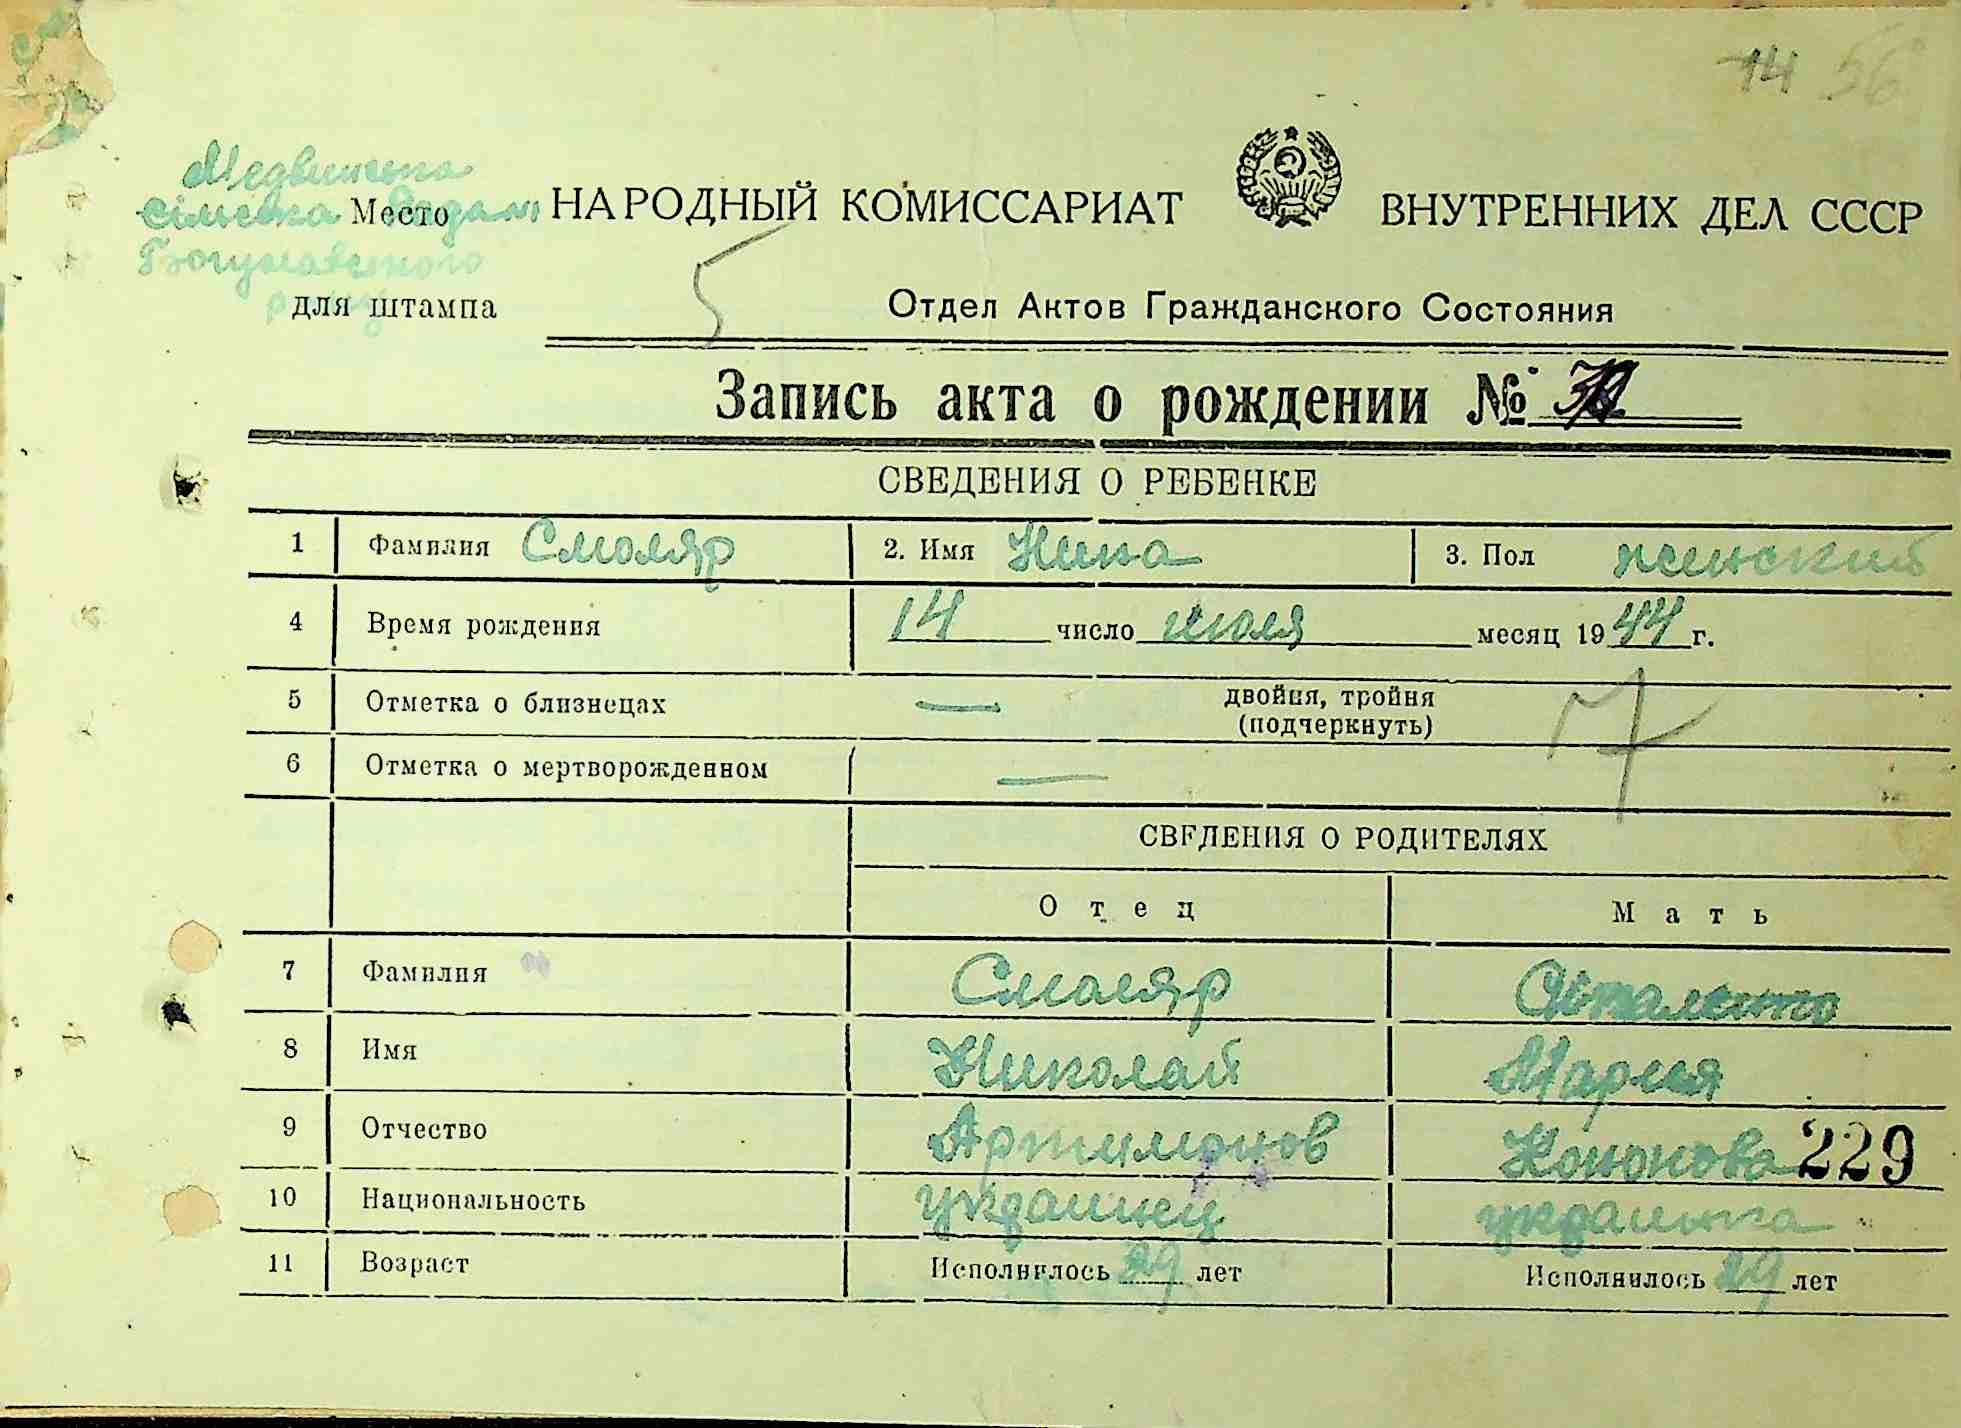 14 56
Медвинська
сільська
Богуславского
Место
для штампа
НАРОДНЫЙ КОМИССАРИАТ ВНУТРЕННИХ ДЕЛ СССР
Отдел Актов Гражданского Состояния
Запись акта о рождении №
СВЕДЕНИЯ О РЕБЕНКЕ
1 Фамилия Смоляр 2. Имя Нина 3. Пол женский
4 Время рождения 14 число июля месяц 1944 г.
5 Отметка о близнецах — двойня, тройня
(подчеркнуть)
6 Отметка о мертворожденном —
СВЕДЕНИЯ О РОДИТЕЛЯХ
Отец Мать
7 Фамилия Смоляр
8 Имя Николай Мария
9 Отчество Артимонов Кононова 229
10 Национальность украинец украинка
11 Возраст Исполнилось 29 лет Исполнилось 29 лет